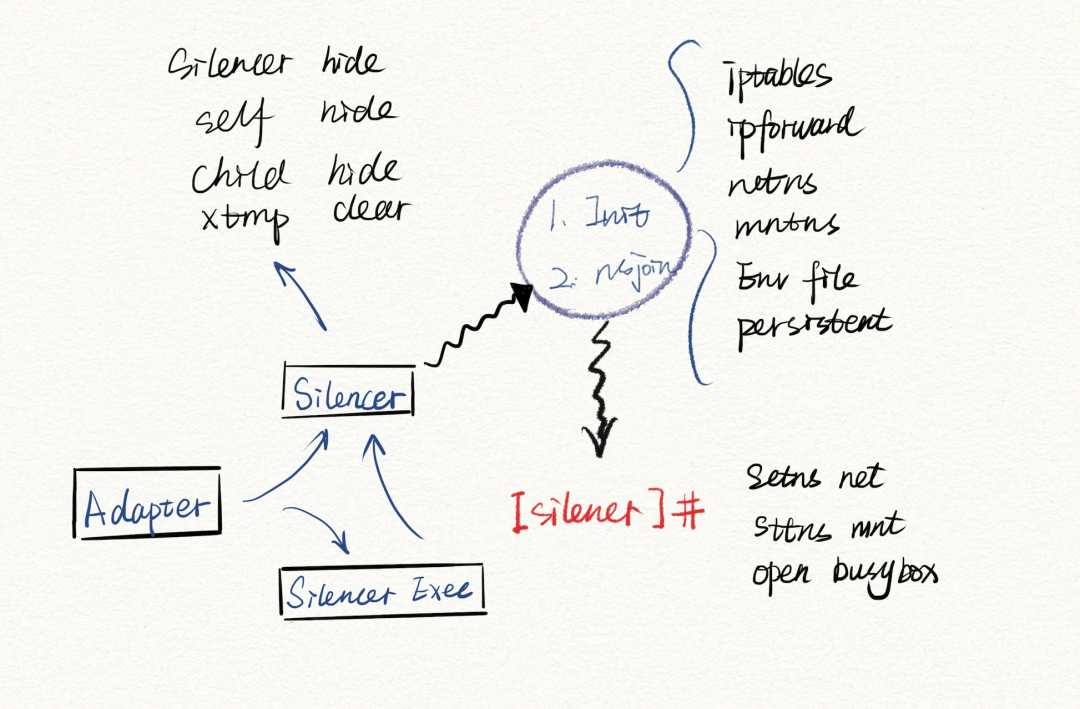 Silencer hide
self hide
child hide
xtmp clear
iptables
ipforward
netns
mntns
Env file
persistent
1. Init
2. nsjoin
Silencer
Adapter
Silencer Exec
[silener]#
Setns net
Sttns mnt
open busybox